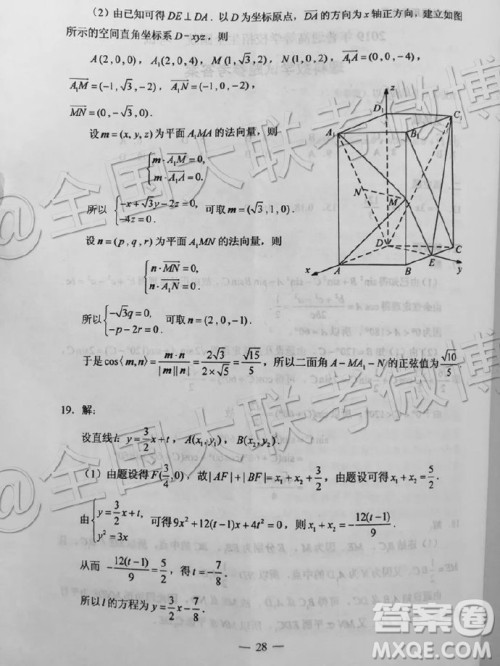 (2) 由已知可得 DE⊥DA. 以 D 为坐标原点, $\overrightarrow{DA}$ 的方向为 x 轴正方向, 建立如图
所示的空间直角坐标系 D-xyz, 则
A(2,0,0), A₁(2,0,4), M(1,√3,2), N(1,0,2), $\overrightarrow{A_1A}$=(0,0,-4),
$\overrightarrow{A_1M}$=(-1,√3,-2), $\overrightarrow{A_1N}$=(-1,0,-2),
$\overrightarrow{MN}$=(0,-√3,0).
设 m=(x,y,z) 为平面 A₁MA 的法向量, 则
{m·$\overrightarrow{A_1M}$=0,
m·$\overrightarrow{A_1A}$=0,
所以 {-x+√3y-2z=0,
-4z=0. 可取 m=(√3,1,0).
设 n=(p,q,r) 为平面 A₁MN 的法向量, 则
{n·$\overrightarrow{MN}$=0,
n·$\overrightarrow{A_1N}$=0.
所以 {-√3q=0,
-p-2r=0. 可取 n=(2,0,-1).
于是 cos⟨m,n⟩=$\frac{m·n}{|m||n|}$=$\frac{2\sqrt{3}}{2×\sqrt{5}}$=$\frac{\sqrt{15}}{5}$, 所以二面角 A-MA₁-N 的正弦值为 $\frac{\sqrt{10}}{5}$.
19. 解:
设直线 l: y=$\frac{3}{2}$x+t, A(x₁,y₁), B(x₂,y₂).
(1) 由题设得 F($\frac{3}{4}$,0), 故 |AF|+|BF|=x₁+x₂+$\frac{3}{2}$, 由题设可得 x₁+x₂=$\frac{5}{2}$.
由 {y=$\frac{3}{2}$x+t,
y²=3x 可得 9x²+12(t-1)x+4t²=0, 则 x₁+x₂=-$\frac{12(t-1)}{9}$.
从而 -$\frac{12(t-1)}{9}$=$\frac{5}{2}$, 得 t=-$\frac{7}{8}$.
所以 l 的方程为 y=$\frac{3}{2}$x-$\frac{7}{8}$.
— 28 —
D₁
C₁
A₁
B₁
M
N
D
C
A
B
E
x
y
@全国大联考微博
@全国大联考微博
答案圈
MXQE.COM